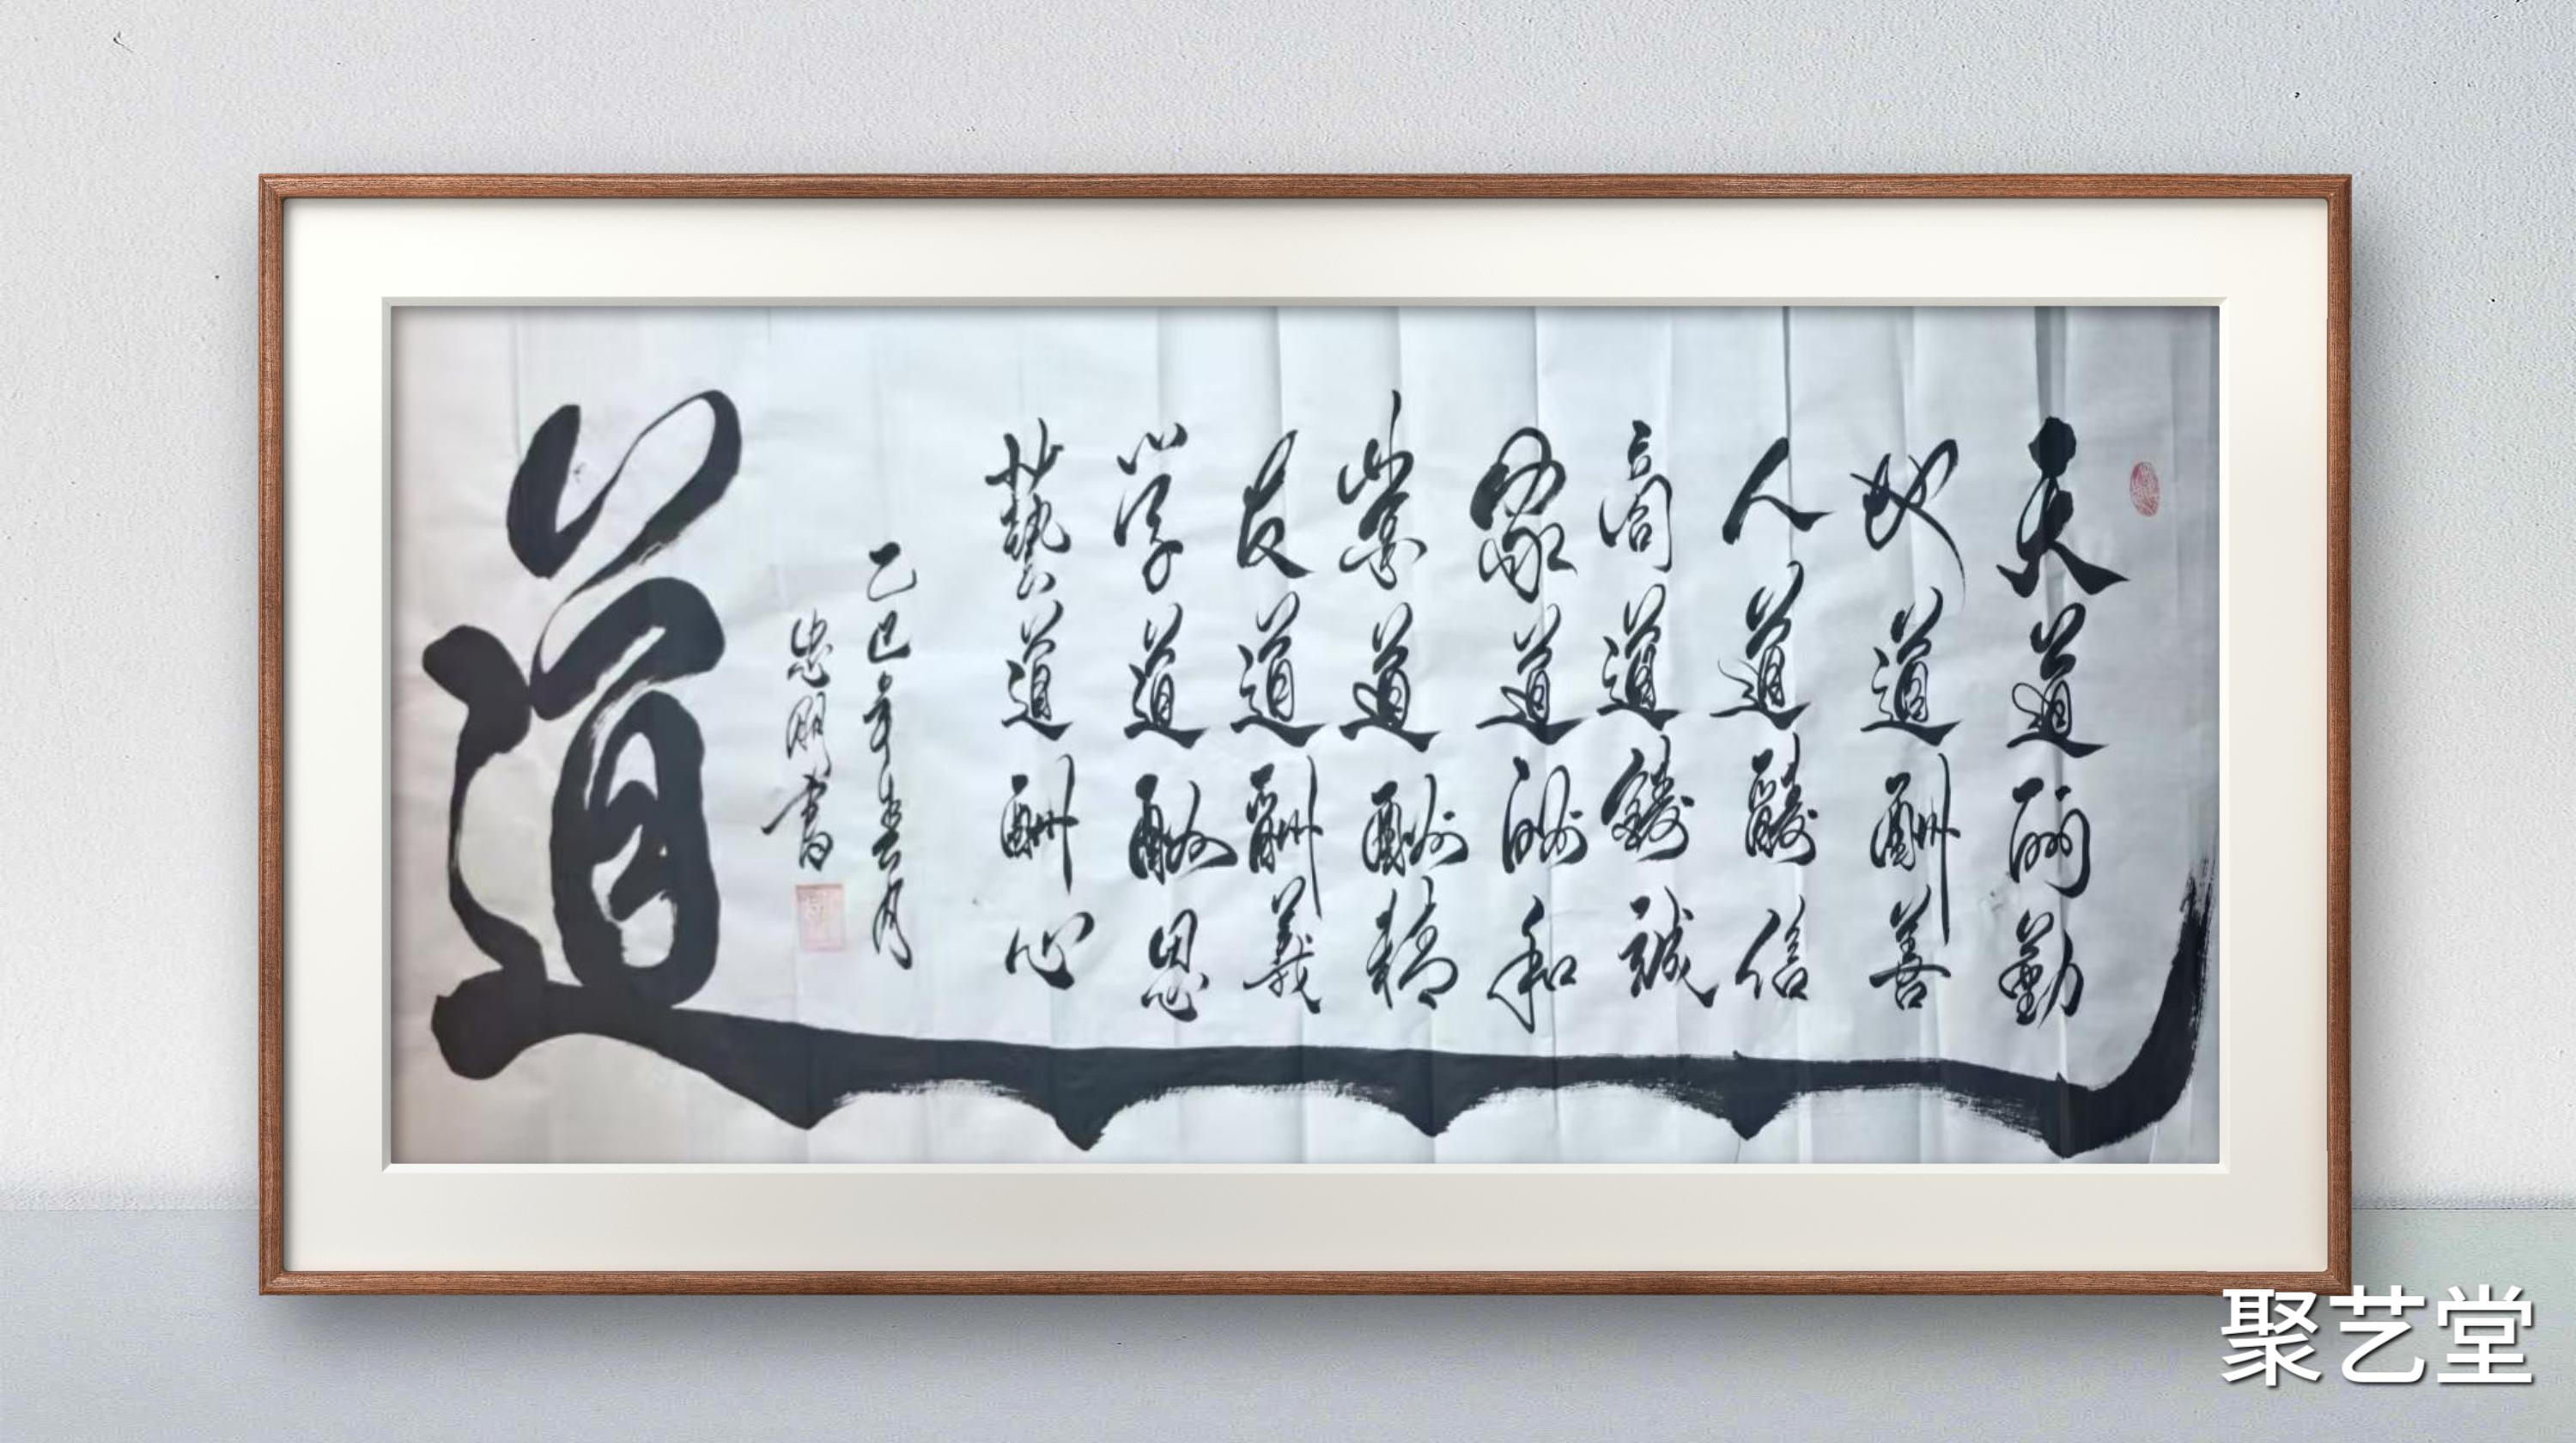 天道酬勤
地道酬善
人道酬信
商道酬誠
家道酬和
業道酬精
友道酬義
学道酬恩
藝道酬心
乙巳年
忠明書
道
聚艺堂